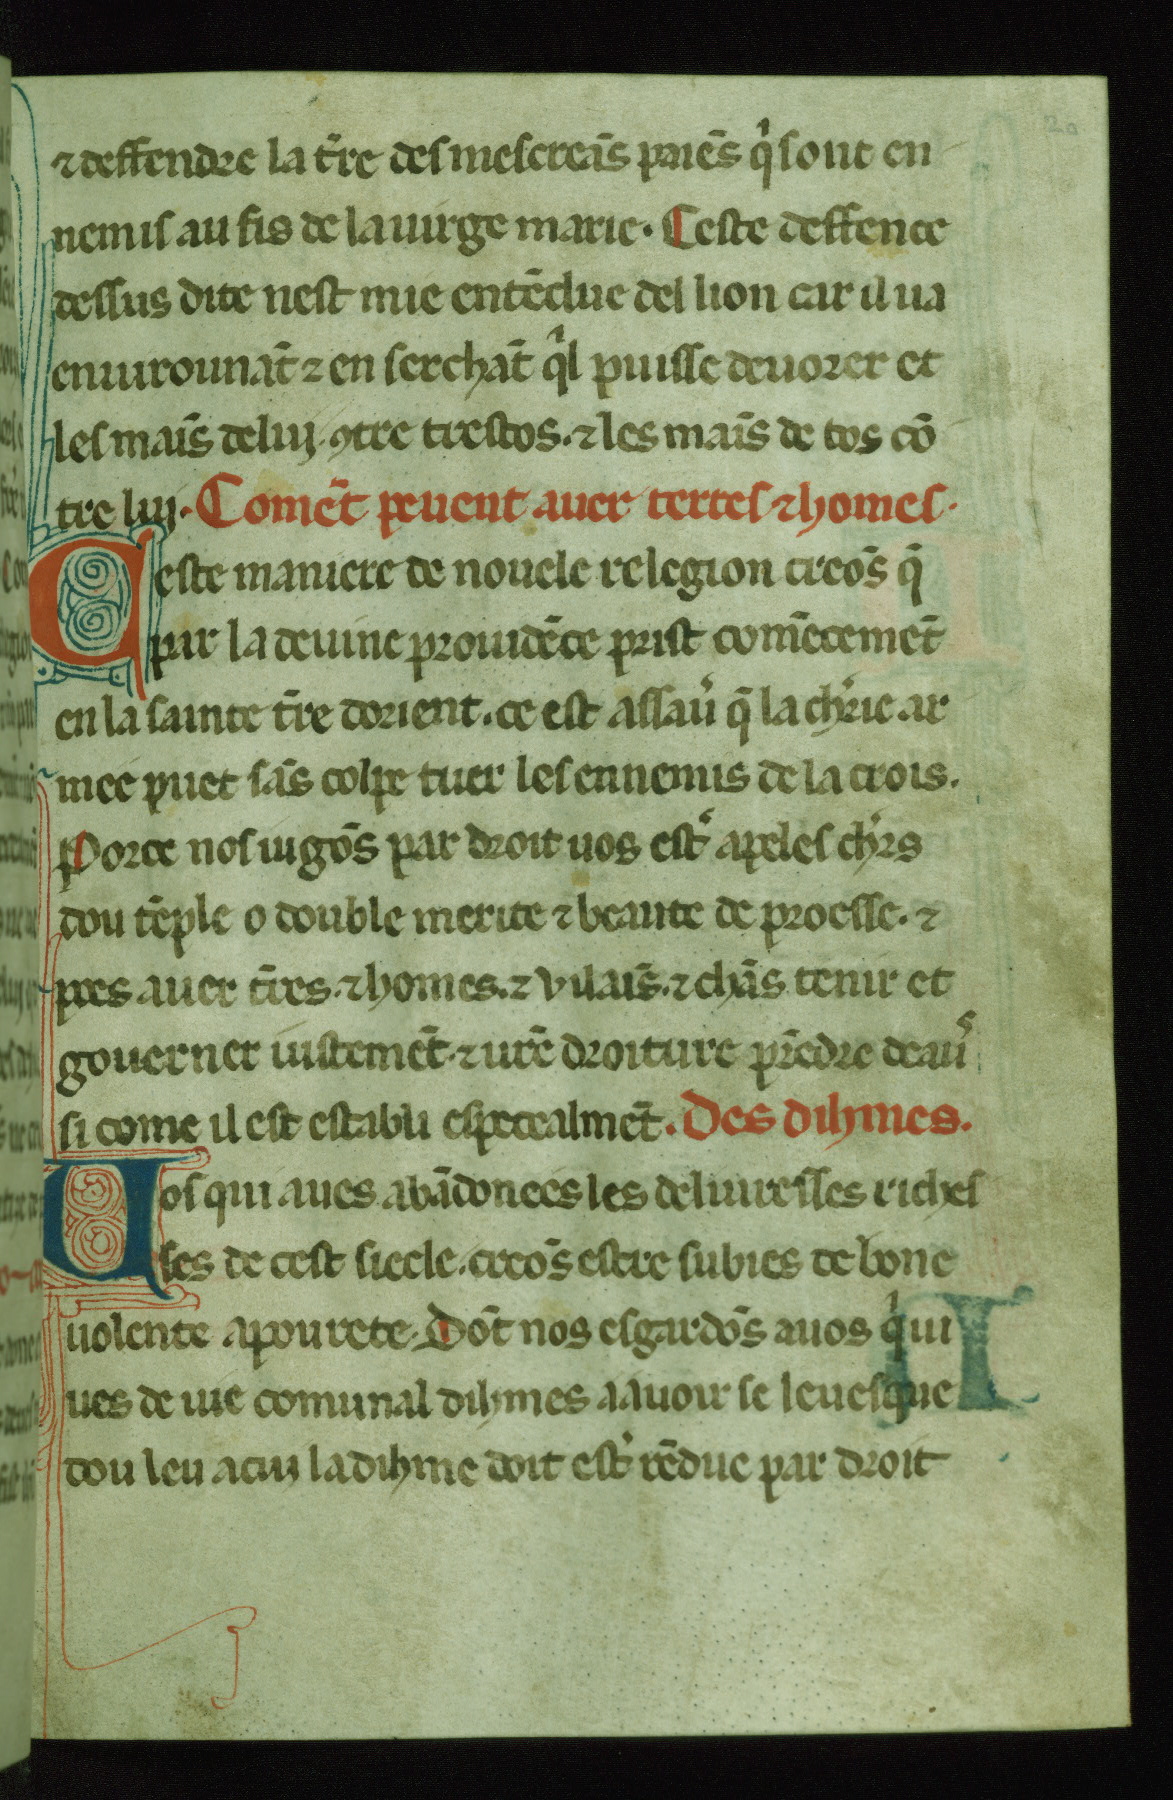 ⁊ deffendre la tr̄e des mescreās paiēs qͥ sont en
nemis au fis de la uirge marie. Ceste deffence
dessus dite nest mie entēdue del lion car il ua
enuirounāt ⁊ en serchāt qͥl puisse deuorer et
les maīs de luj ꝯtre trestos. ⁊ les maīs de tos cō
tre luj. Comēt peuent auer terres ⁊ homes.
Ceste maniere de nouele relegion creōs q̄
par la deuine prouidēce prist comēcemēt
en la sainte tr̄e dorient. ce est assau̓ q̄ la ch̓rie ar
mee puet sās colpe tuer les ennemis de la crois.
Porce nos iugōs par droit uos est̓ apeles ch̓rs
dou tēple o double merite ⁊ beaute de proesse. ⁊
poes auer tr̄es. ⁊ homes. ⁊ vilaīs. ⁊ chās tenir et
gouerner iustemēt. ⁊ ur̄e droiture prēdre deau̓s
si come il est establi especealmēt. Des dihmes.
Vos qui aues abādonees les deliuresses riches
ses de cest siecle. creōs estre subies de bone
uolente a pourete. Dōt nos esgardōs a uos qͥ ui
ues de uie comunal dihmes a auoir se leuesque
dou leu a cuj la dihme doit est̓ rēdue par droit